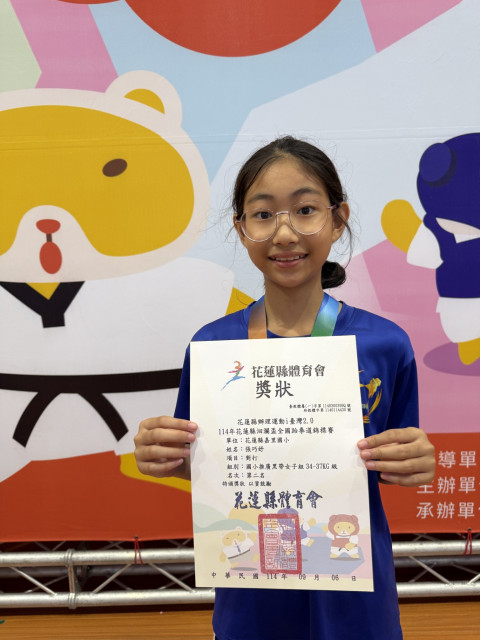 花蓮縣體育會
獎狀
花蓮縣辦理運動i臺灣2.0
114年花蓮縣洄瀾盃全國跆拳道錦標賽
單位：花蓮縣嘉里國小
姓名：張巧妤
項目：對打
組別：國小推廣黑帶女子組 34-37KG級
名次：第二名
特頒獎狀 以資鼓勵
花蓮縣體育會
中華民國 114 年 09 月 06 日
導單
主辦單
承辦單